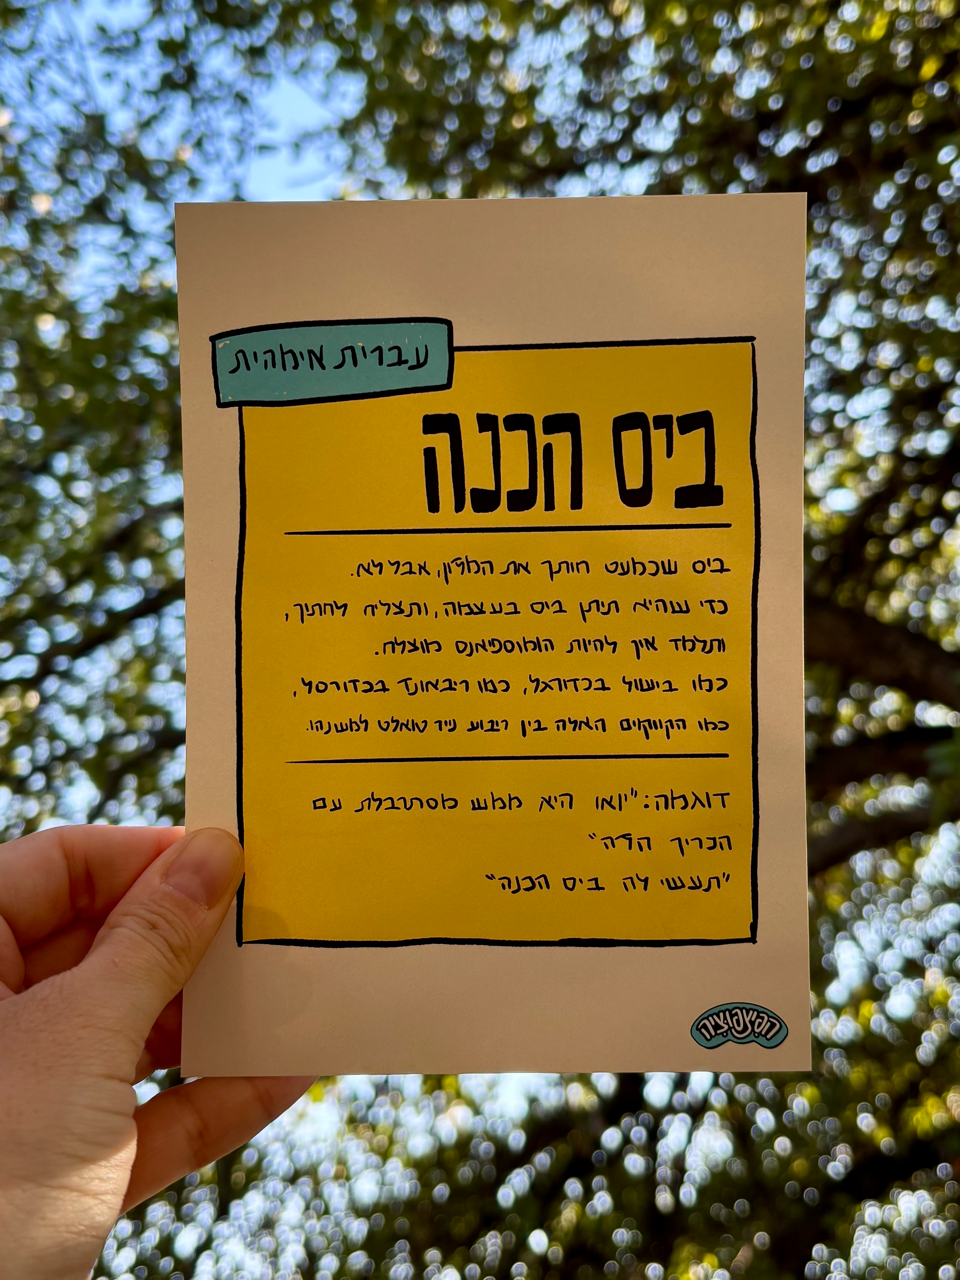 עברית אימהית
ביס הכנה
ביס שכמעט חותך את המזון, אבל לא.
כדי שהיא תיתן ביס בעצמה, ותצליח לחתוך,
ותלמד איך להיות הומוספיאנס מוצלח.
כמו בישול בכדורגל, כמו ריבאונד בכדורסל,
כמו הקווקווים האלה בין ריבוע נייר טואלט למשנהו.
דוגמה: "יואו היא ממש מסתבלת עם
הכריך הזה"
"תעשי לה ביס הכנה"
הפיצפוציה